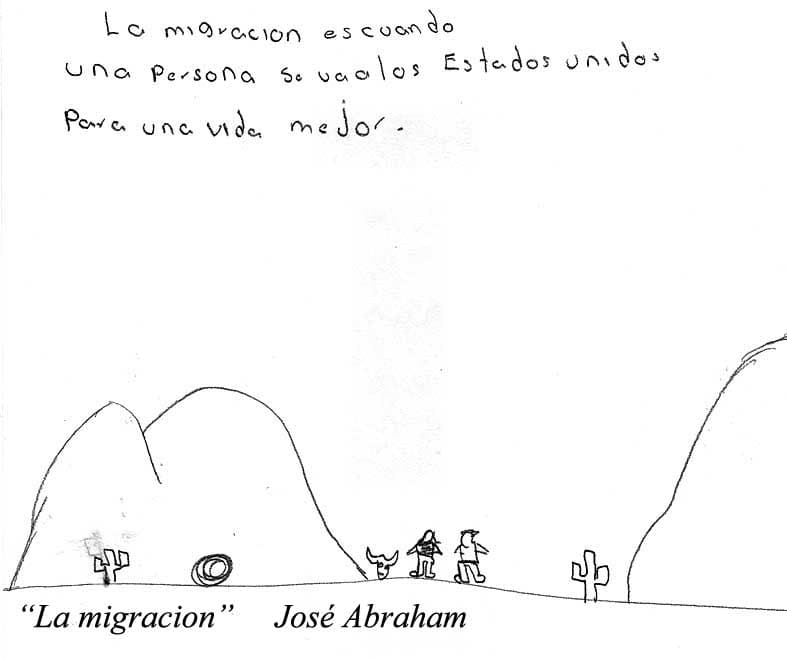 La migracion escuando
una Persona se vaalos Estados unidos
Para una vida mejor.
“La migracion” José Abraham